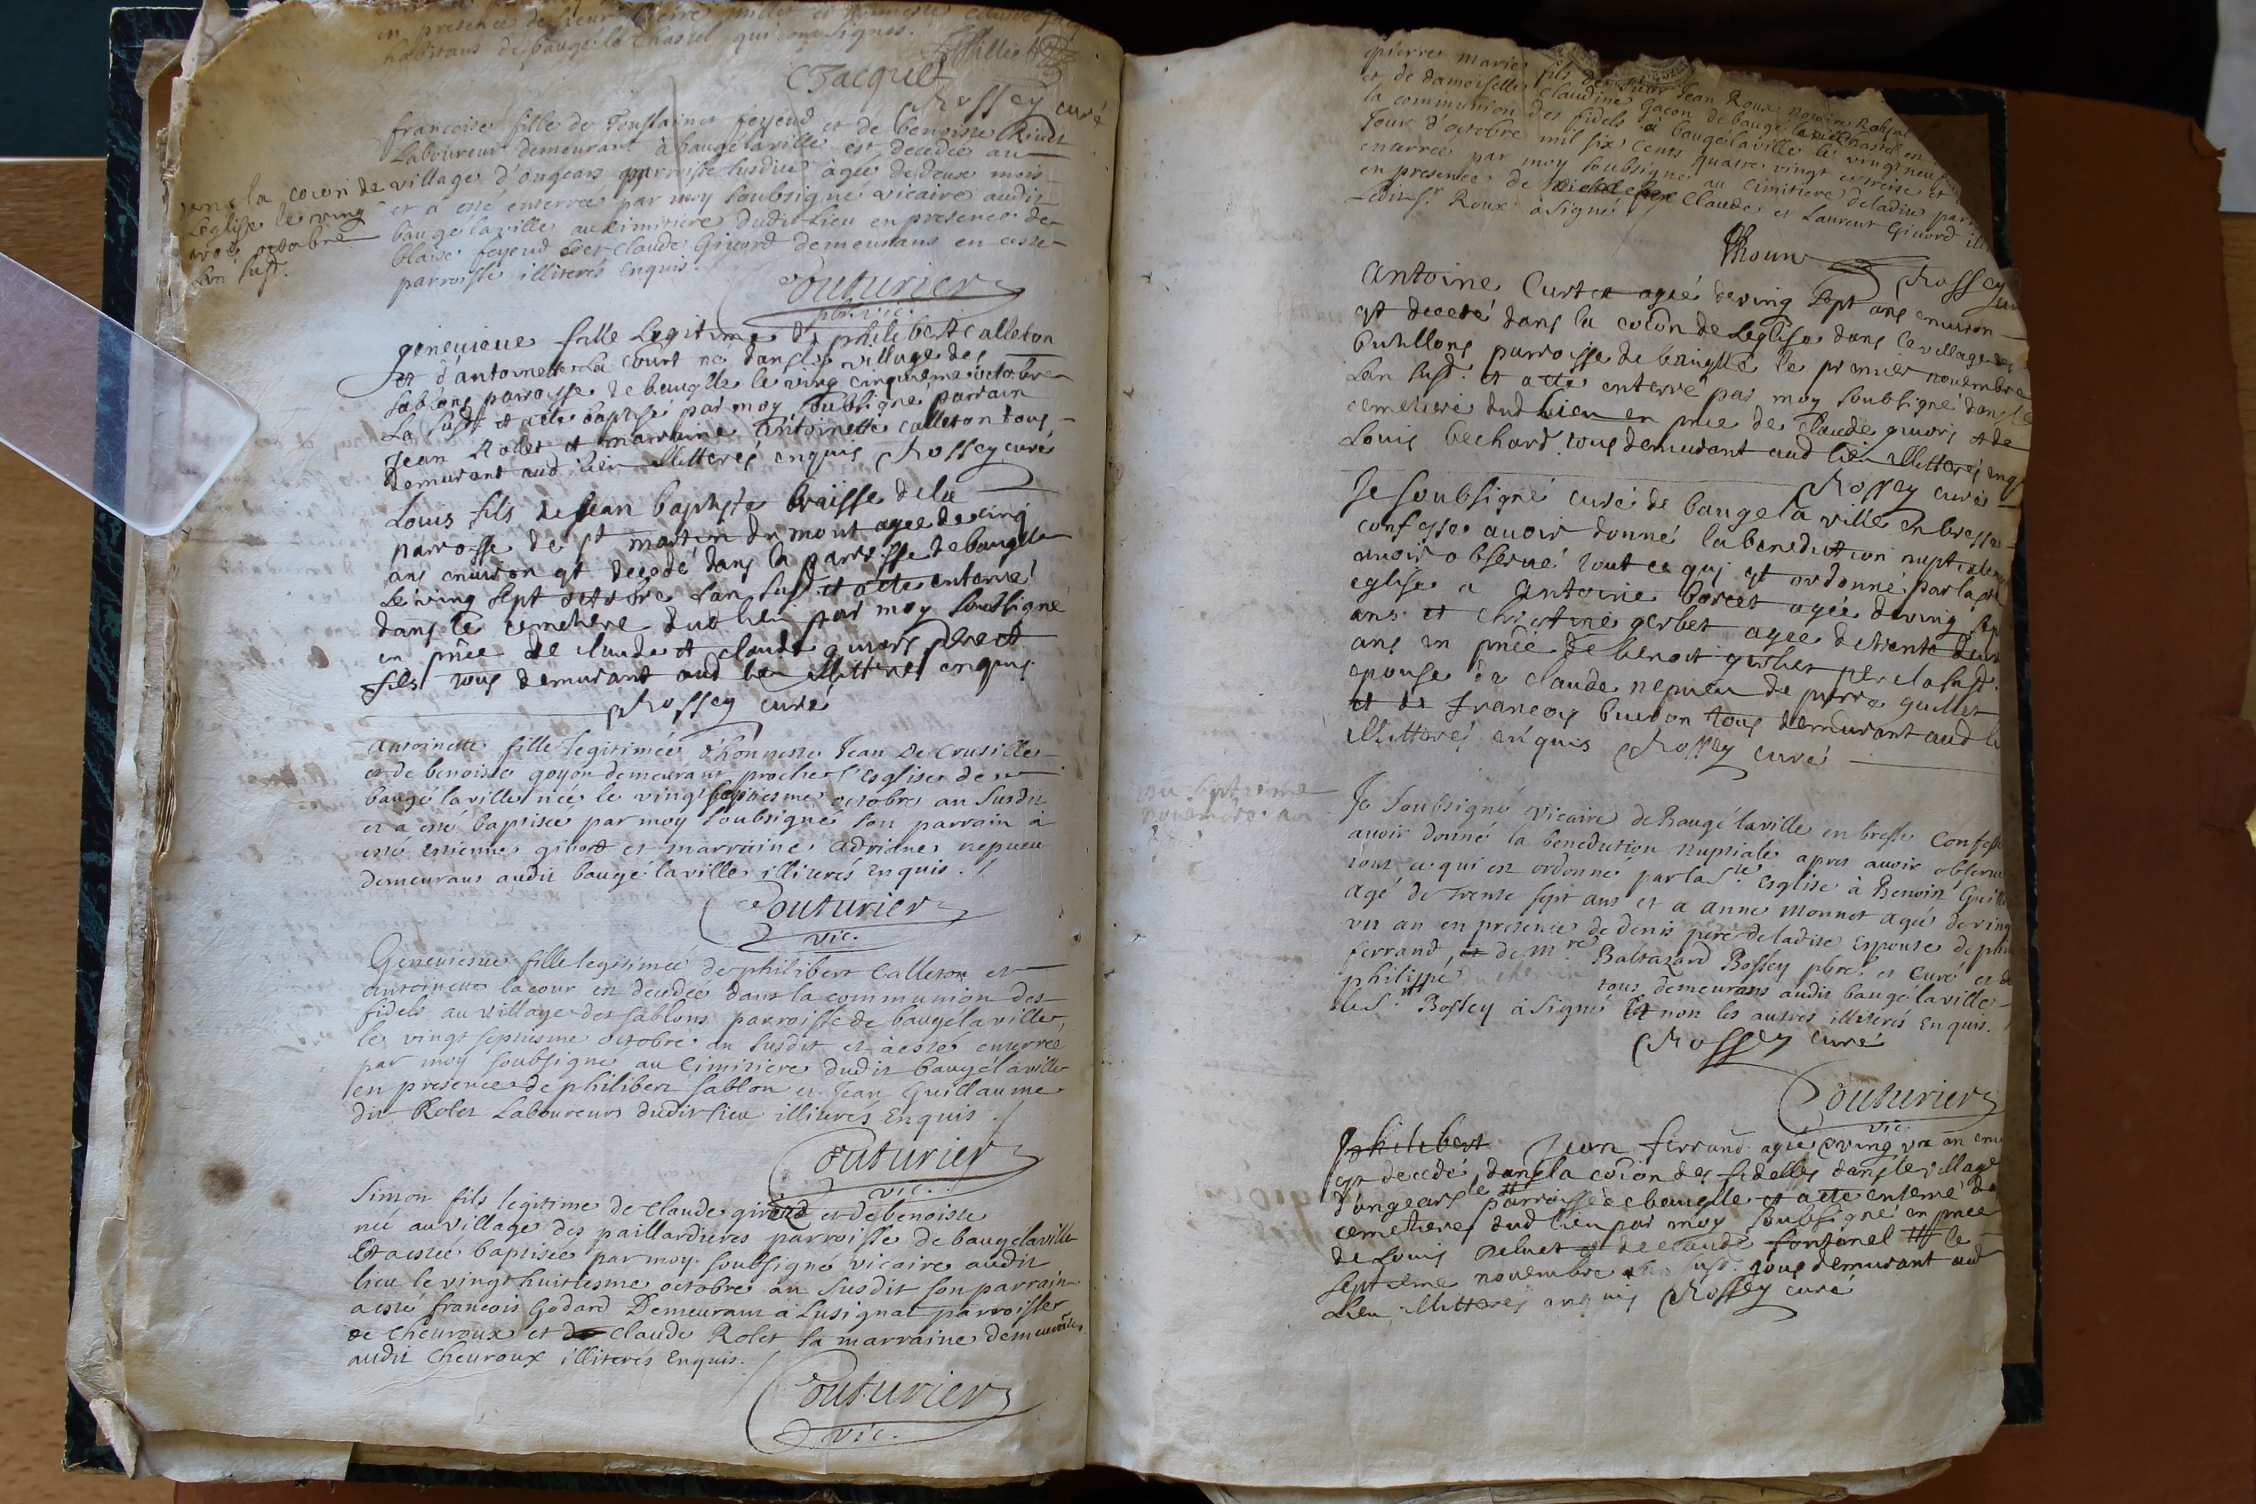 en presence de sieur
habitans de baugé le Chastel qui ont signes.
CJacquet
Rossey curé
françoise fille de Toussainct feyeud et de benoiste Rivet
Laboureur demeurant à baugé la ville est decedée au
village d'ongears parroisse susdite agée de deux mois
et a esté enterrée par moy soubsigné vicaire audit
baugé la ville au cimitiere dudit Lieu en presence de
blaise feyeud et Claude Givord demeurans en cette
parroisse illiterés Enquis.
la coion de
L'église le ving
octobre
L'an susd.
Couturier
pbr. vic.
genevieve fille Legitime de philibert calleton
et d'antoinette La court né dans le village des
sablons parroisse de bauglle le ving cinquième octobre
La susd et a été baptisé par moy soubsigné parrain
Jean Rolet et marraine Antoinette calleton tous
demurant aud lieu illitterés enquis Rossey curé
Louis fils de Jean baptiste braisse de la
parroisse de st martin du mont agee de cinq
ans environ est decedé dans la parroisse de bauglle
Le ving sept octobre L'an susd et a été enterré
dans le cemetiere dud lieu par moy soubsigné
en pnce de claude et claude givors pere et
fils tous demurant aud lieu illitteres enquis
Rossey curé
Antoinette fille legitimée d'honneste Jean De Crusilles
et de benoiste goyon demeurant proche l'Esglise de
baugé la ville née le vingt septiesme octobre an susdit
et a esté baptisée par moy soubsigné son parrain à
esté estienne givord et marraine Adriane nepveu
demeurans audit baugé la ville illiterés Enquis.
Couturier
vic.
Genevieve fille legitimée de philibert Calleton et
antoinette lacour est decedée dans la communion des
fidels au village des sablons parroisse de baugé la ville
le vingt septiesme octobre an susdit et à esté enterrée
par moy soubsigné au Cimitiere dudit baugé la ville
en presence de philibert sablon et Jean Guillaume
dit Rolet Laboureurs dudit lieu illiterés Enquis.
Couturier
vic.
Simon fils legitime de Claude givord et de benoiste
né au village des paillardieres parroisse de baugé la ville
Et a esté baptisée par moy soubsigné vicaire audit
lieu le vingt huitiesme octobre an susdit son parrain
a esté françois Godard Demeurant à Lusignat parroisse
de Cheuroux et de Claude Rolet sa marraine demeurans
audit Cheuroux illiterés Enquis.
Couturier
vic.
pierre marie fils de sieur Jean Roux notaire Royal
et de damoiselle Claudine Gacon de baugé
la communion des fidels à baugé la ville le vingt neuf
Jour d'octobre mil six Cents quatre vingt et treise et
enterree par moy soubsigné au Cimitiere de ladite par
en presence de Claude et Laurent Givord ill
Ledit Sr. Roux à signé
Rossey
Antoine Curtet agée de ving sept ans environ
est decedé dans la coion de L'eglise dans le village des
butillons parroisse de bauglle le premier novembre
L'an susd. et a été enterré par moy soubsigné dans le
cemetiere dud lieu en pnce de Claude givors et de
Louis bechard tous demurant aud lieu illitterés enq
Rossey curé
Je soubsigné curé de bauge la ville en bresse
confesse avoir donné la benediction nuptiale
avoir observé tout ce qui est ordonné par la ste
eglise a Antoine borcet agée de ving sep
ans et christine gerbet agee de trente deux
ans en pnce de benoit gerbet pere de la susd.
epouse de claude nepveu de pierre guillet
et de francois buedon tous demurant aud li
illitterés enquis Rossey curé
du septieme
novembre an
Je Soubsigné Vicaire de Baugé la ville en bresse Confesse
avoir donné la benediction nuptiale apres avoir observé
tout ce qui est ordonné par la Ste Esglise à Benoist Guill
agé de Trente sept ans et a anne Monnet agée de ving
un an en presence de denis pere de ladite Espouse de
ferrand, de Mre. Baltazard Bossey pbre. et Curé et de
philippe tous demeurans audit baugé la ville
led S. Bossey à signé et non les autres illiterés Enquis.
Rossey curé
Couturier
vic.
philibert Jean ferrand agée de ving un an env
est decedé dans la coion des fidelles dans le village
d'ongears parroisse de baugelle et a été enterré da
cemetiere dud lieu par moy soubsigné en pnce
de Louis et de Claude fontanel le
septieme novembre susd. tous demurant aud
Lieu illitteres enquis Rossey curé